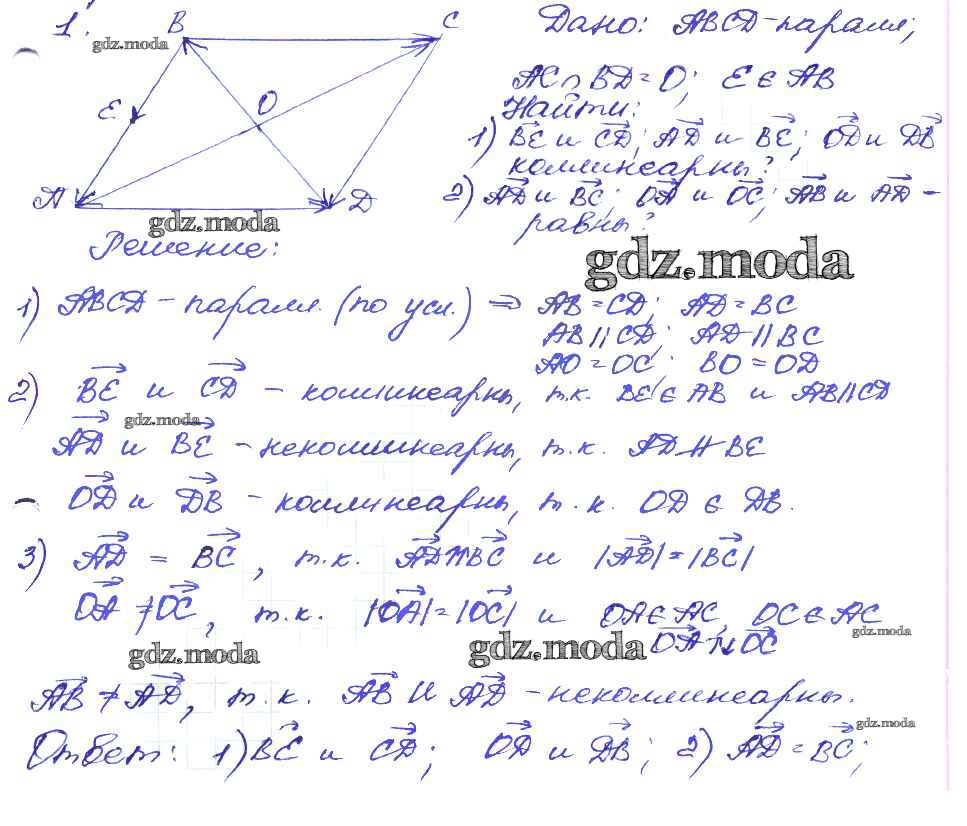 1.
B C
gdz.moda
E O
A D
gdz.moda
Дано: ABCD-паралл;
AC∩BD=O; E∈AB
Найти:
1) BE и CD; AD и BE; OD и DB
коллинеарны?
2) AD и BC; OA и OC; AB и AD-
равны?
gdz.moda
Решение:
1) ABCD-паралл. (по усл.) ⇒ AB=CD; AD=BC
AB||CD; AD||BC
AO=OC; BO=OD
2) BE и CD - коллинеарны, т.к. BE∈AB и AB||CD
gdz.moda
AD и BE - неколлинеарны, т.к. AD∦BE
OD и DB - коллинеарны, т.к. OD∈DB.
3) AD = BC, т.к. AD↑↑BC и |AD|=|BC|
OA≠OC, т.к. |OA|=|OC| и OA∈AC, OC∈AC
gdz.moda
gdz.moda gdz.moda OA↑↓OC
AB≠AD, т.к. AB и AD - неколлинеарны.
gdz.moda
Ответ: 1) BE и CD; OD и DB; 2) AD=BC;